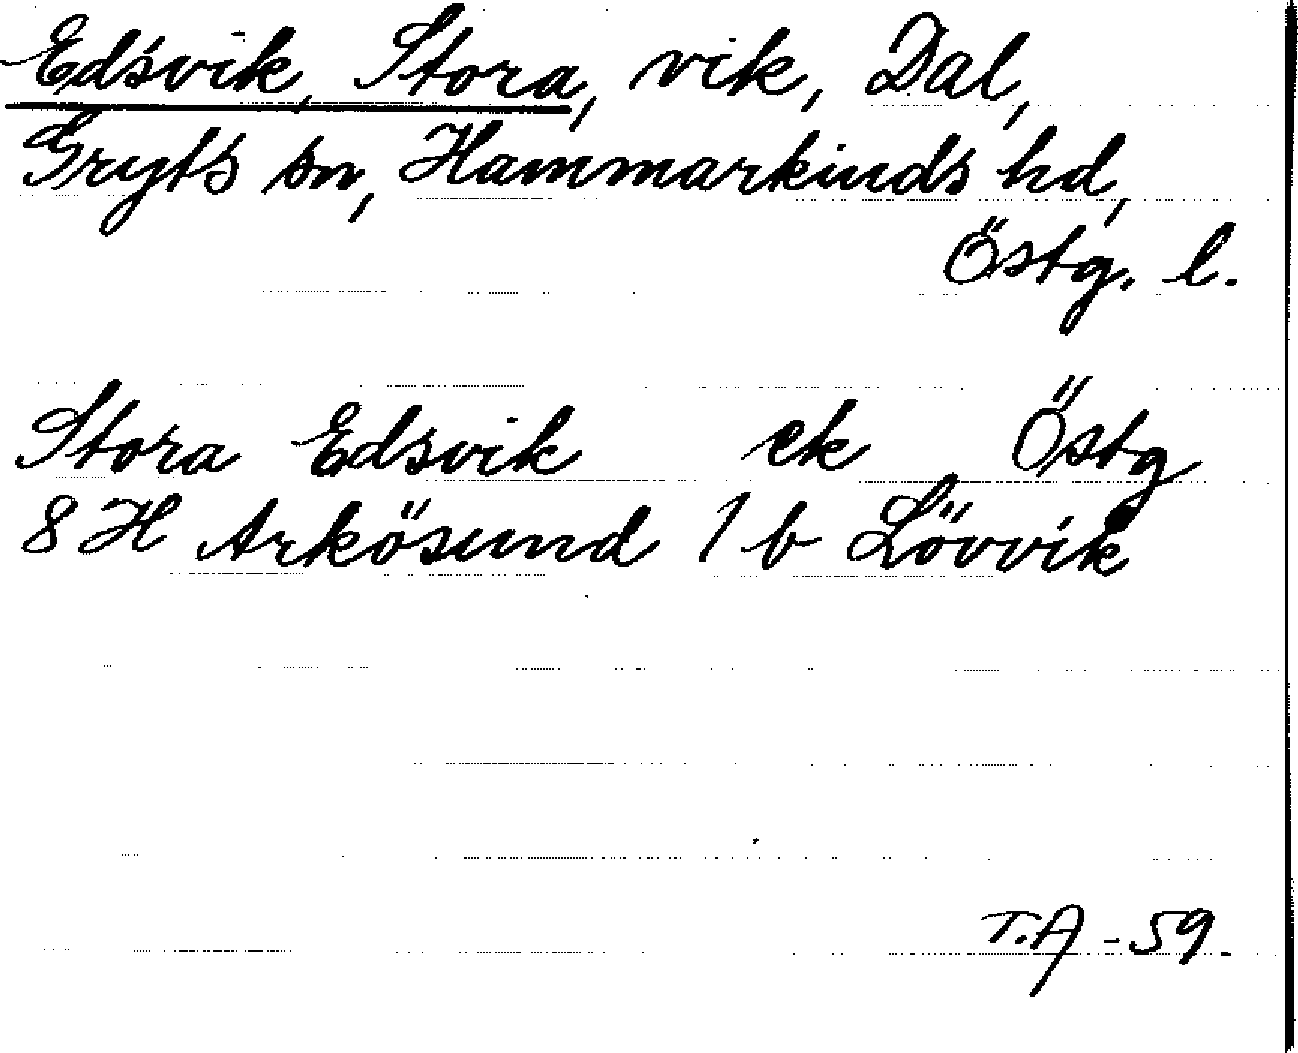 Edsvik, Stora, vik, Dal,
Gryts sn, Hammarkinds hd,
Östg. l.
Stora Edsvik ek Östg
8 H Arkösund 1 b Lövvik
T.A -59.